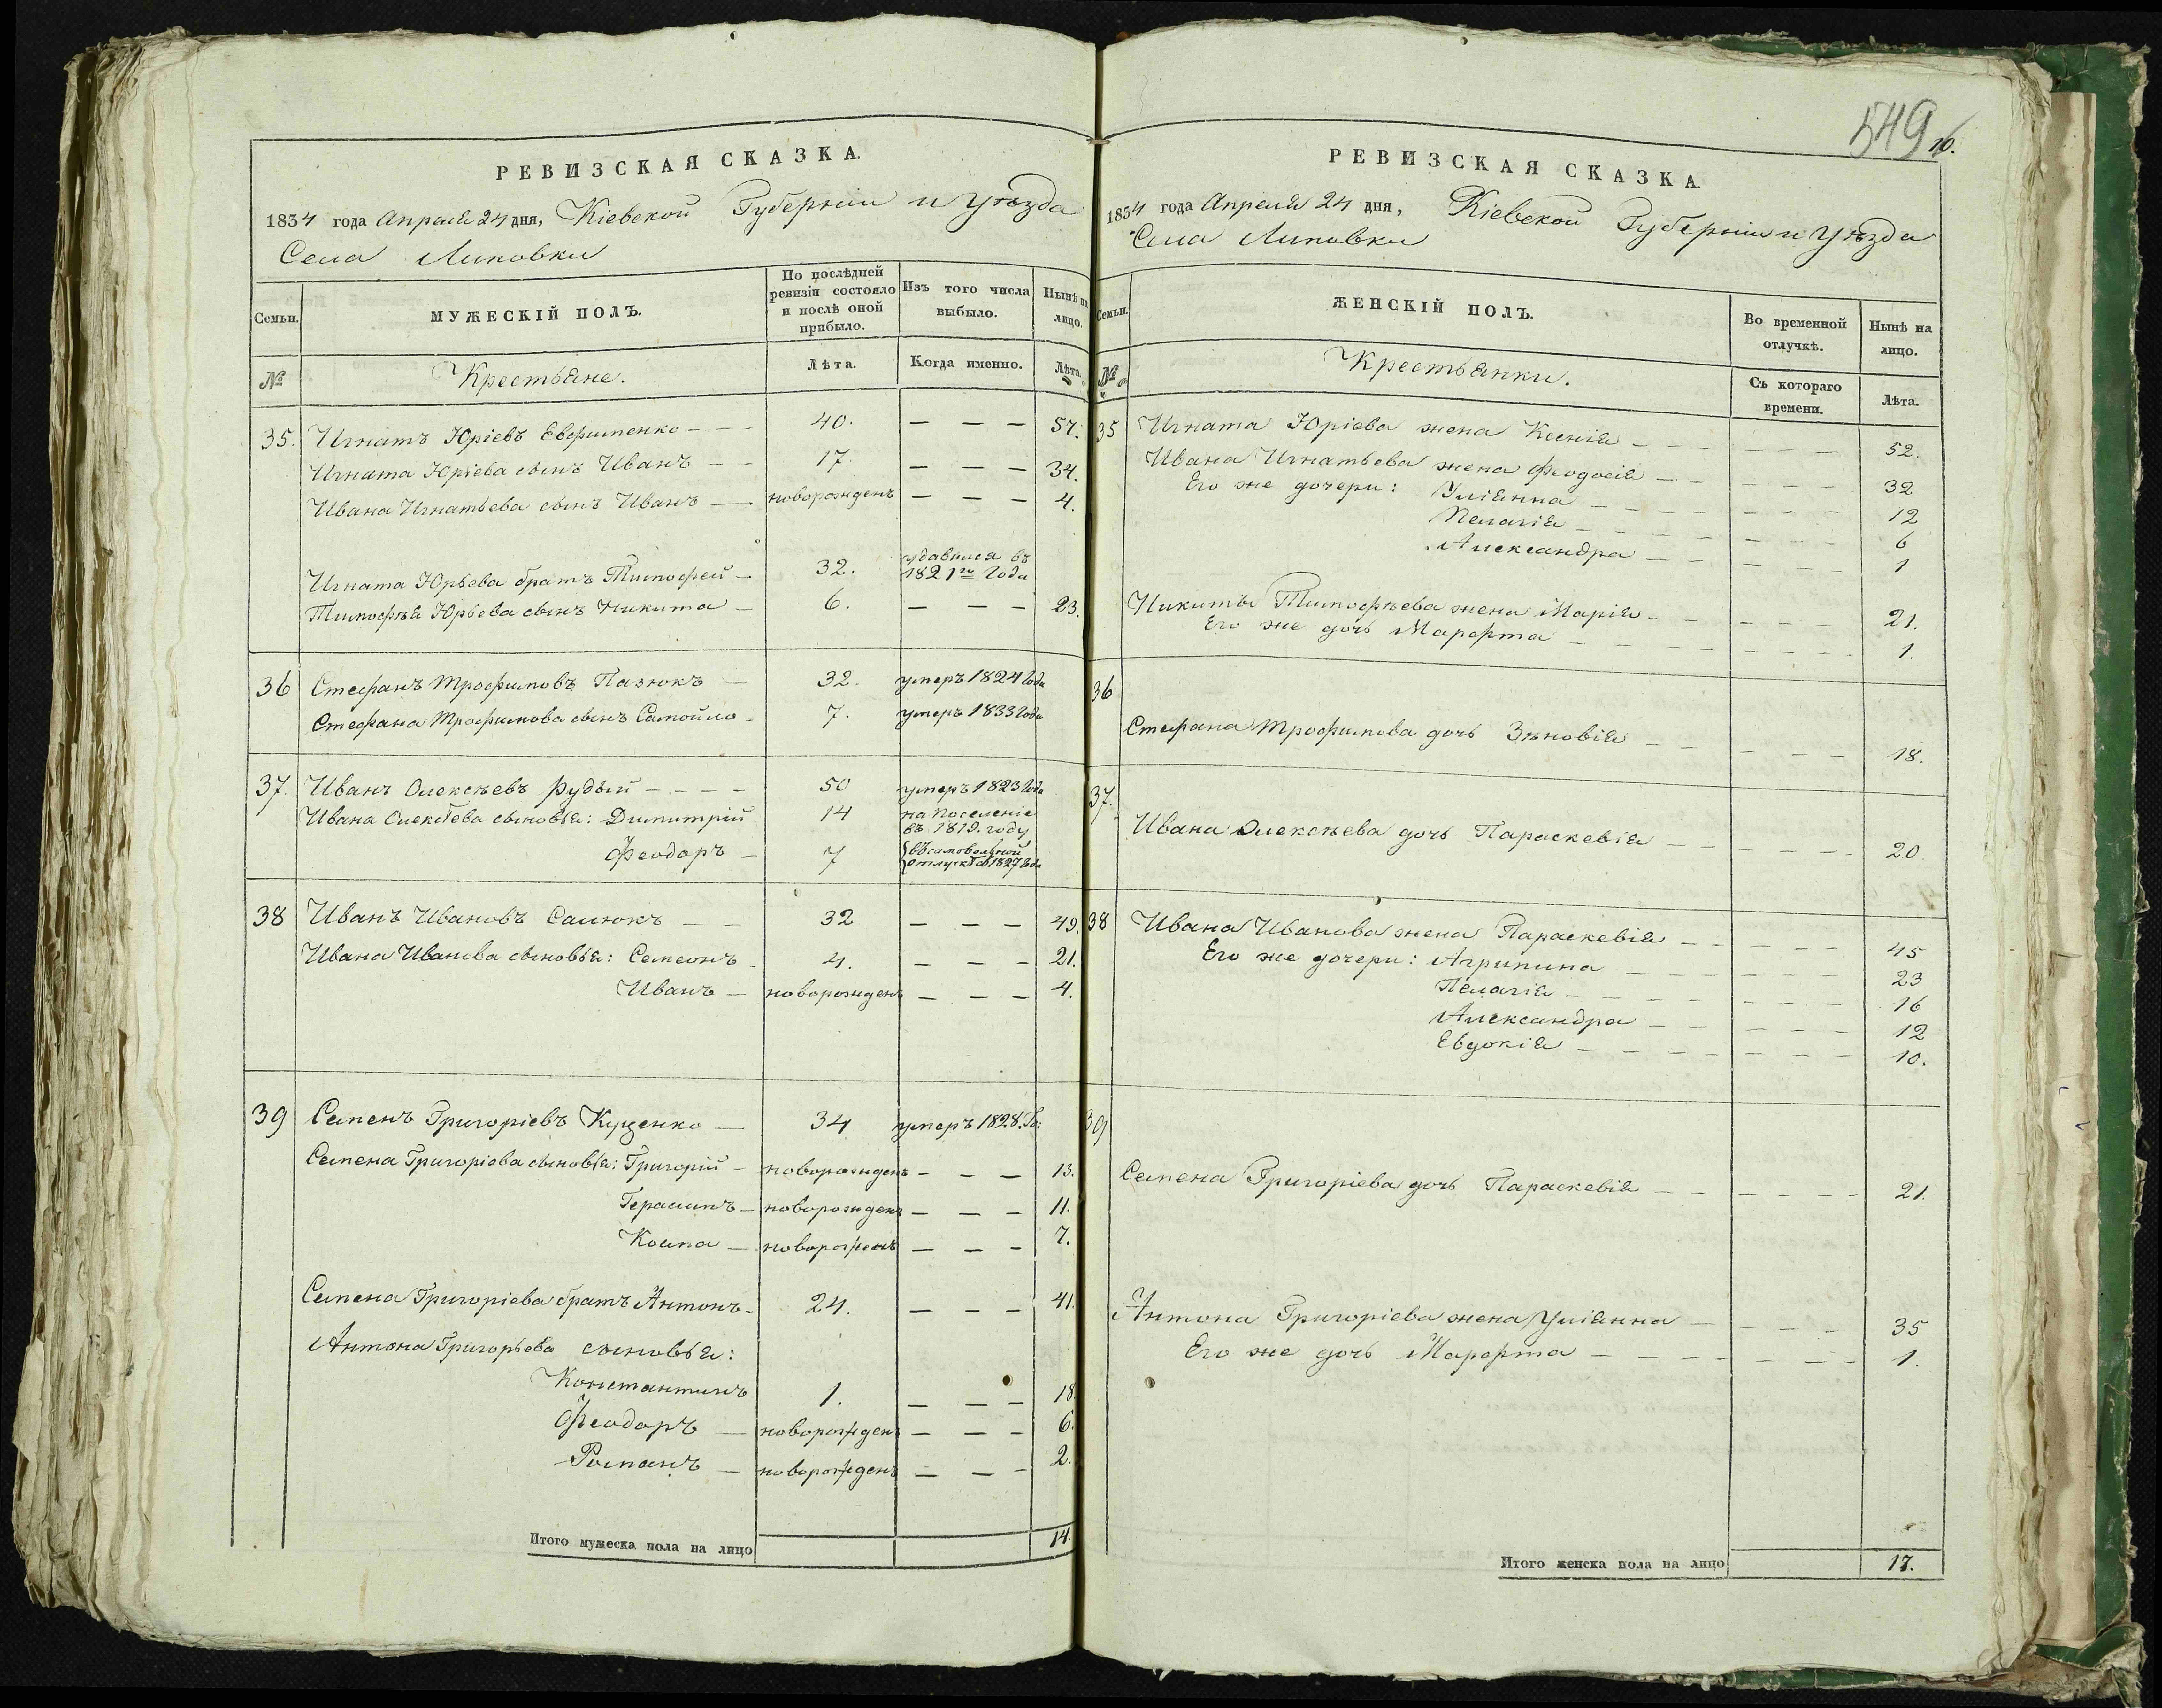 549 16.
РЕВИЗСКАЯ СКАЗКА.
1834 года Апреля 24 дня, Кіевской Губерніи и Уѣзда
Села Липовки
Семьи.
МУЖЕСКІЙ ПОЛЪ.
По послѣдней ревизіи состояло и послѣ оной прибыло.
Изъ того числа выбыло.
Нынѣ на лицо.
№
Крестьяне.
Лѣта.
Когда именно.
Лѣта.
35. Игнатъ Юріевъ Евфименко — — — 40. — — — 57.
Игната Юріева сынъ Иванъ — — 17. — — — 34.
Ивана Игнатьева сынъ Иванъ — новорожденъ — — — 4.
Игната Юрьева братъ Тимофей — 32. удавился въ 1821го Года
Тимофѣя Юрьева сынъ Никита — 6. — — — 23.
36 Стефанъ Трофимовъ Пазюкъ — 32. умеръ 1824 Года
Стефана Трофимова сынъ Самойло — 7. умеръ 1833 Года
37. Иванъ Олексѣевъ Рудый — — — — 50 умеръ 1823 Года
Ивана Олексѣева сыновья: Димитрій 14 на поселеніе въ 1819. году
Феодоръ — 7 въ самовольной отлучкѣ съ 1827 Года
38 Иванъ Ивановъ Салюкъ — — 32 — — — 49.
Ивана Иванова сыновья: Семеонъ — 4. — — — 21.
Иванъ — новорожденъ — — — 4.
39 Семенъ Григоріевъ Куценко — 34 умеръ 1828. Го:
Семена Григоріева сыновья: Григорій — новорожденъ — — — 13.
Герасимъ — новорожденъ — — — 11.
Козма — новорожденъ — — — 7.
Семена Григоріева братъ Антонъ — 24. — — — 41.
Антона Григорьева сыновья:
Константинъ 1. — — — 18.
Феодоръ — новорожденъ — — — 6.
Романъ — новорожденъ — — — 2.
Итого мужеска пола на лицо 14.
РЕВИЗСКАЯ СКАЗКА.
1834 года Апреля 24 дня, Кіевской Губерніи и Уѣзда
Села Липовки
Семьи.
ЖЕНСКІЙ ПОЛЪ.
Во временной отлучкѣ.
Нынѣ на лицо.
№
Крестьянки.
Съ котораго времени.
Лѣта.
35 Игната Юріева жена Ксенія — — — — — 52.
Ивана Игнатьева жена Феодосія — — — — — 32
Его же дочери: Уліанна — — — — — — — 12
Пелагія — — — — — — — 6
Александра — — — — — 1
Никиты Тимофѣева жена Марія — — — — — 21.
Его же дочь Марфта — — — — — — — 1.
36
Стефана Трофимова дочь Зѣновія — — — — — 18.
37.
Ивана Олексѣева дочь Параскевія — — — — — 20.
38 Ивана Иванова жена Параскевія — — — — — 45
Его же дочери: Агрипина — — — — — — 23
Пелагія — — — — — — — 16
Александра — — — — — 12
Евдокія — — — — — — — 10.
39
Семена Григоріева дочь Параскевія — — — — — 21.
Антона Григоріева жена Уліанна — — — — 35
Его же дочь Марфта — — — — — — — 1.
Итого женска пола на лицо 17.